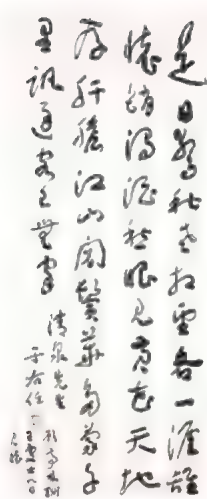 是日驚秋老相望各一涯離
懷銷濁酒愁眼見黃花天地
存肝膽江山閱鬢華多蒙千
里訊逐客已無家
清泉先生
于右任
顧亭林酬
王處士九日
見懷